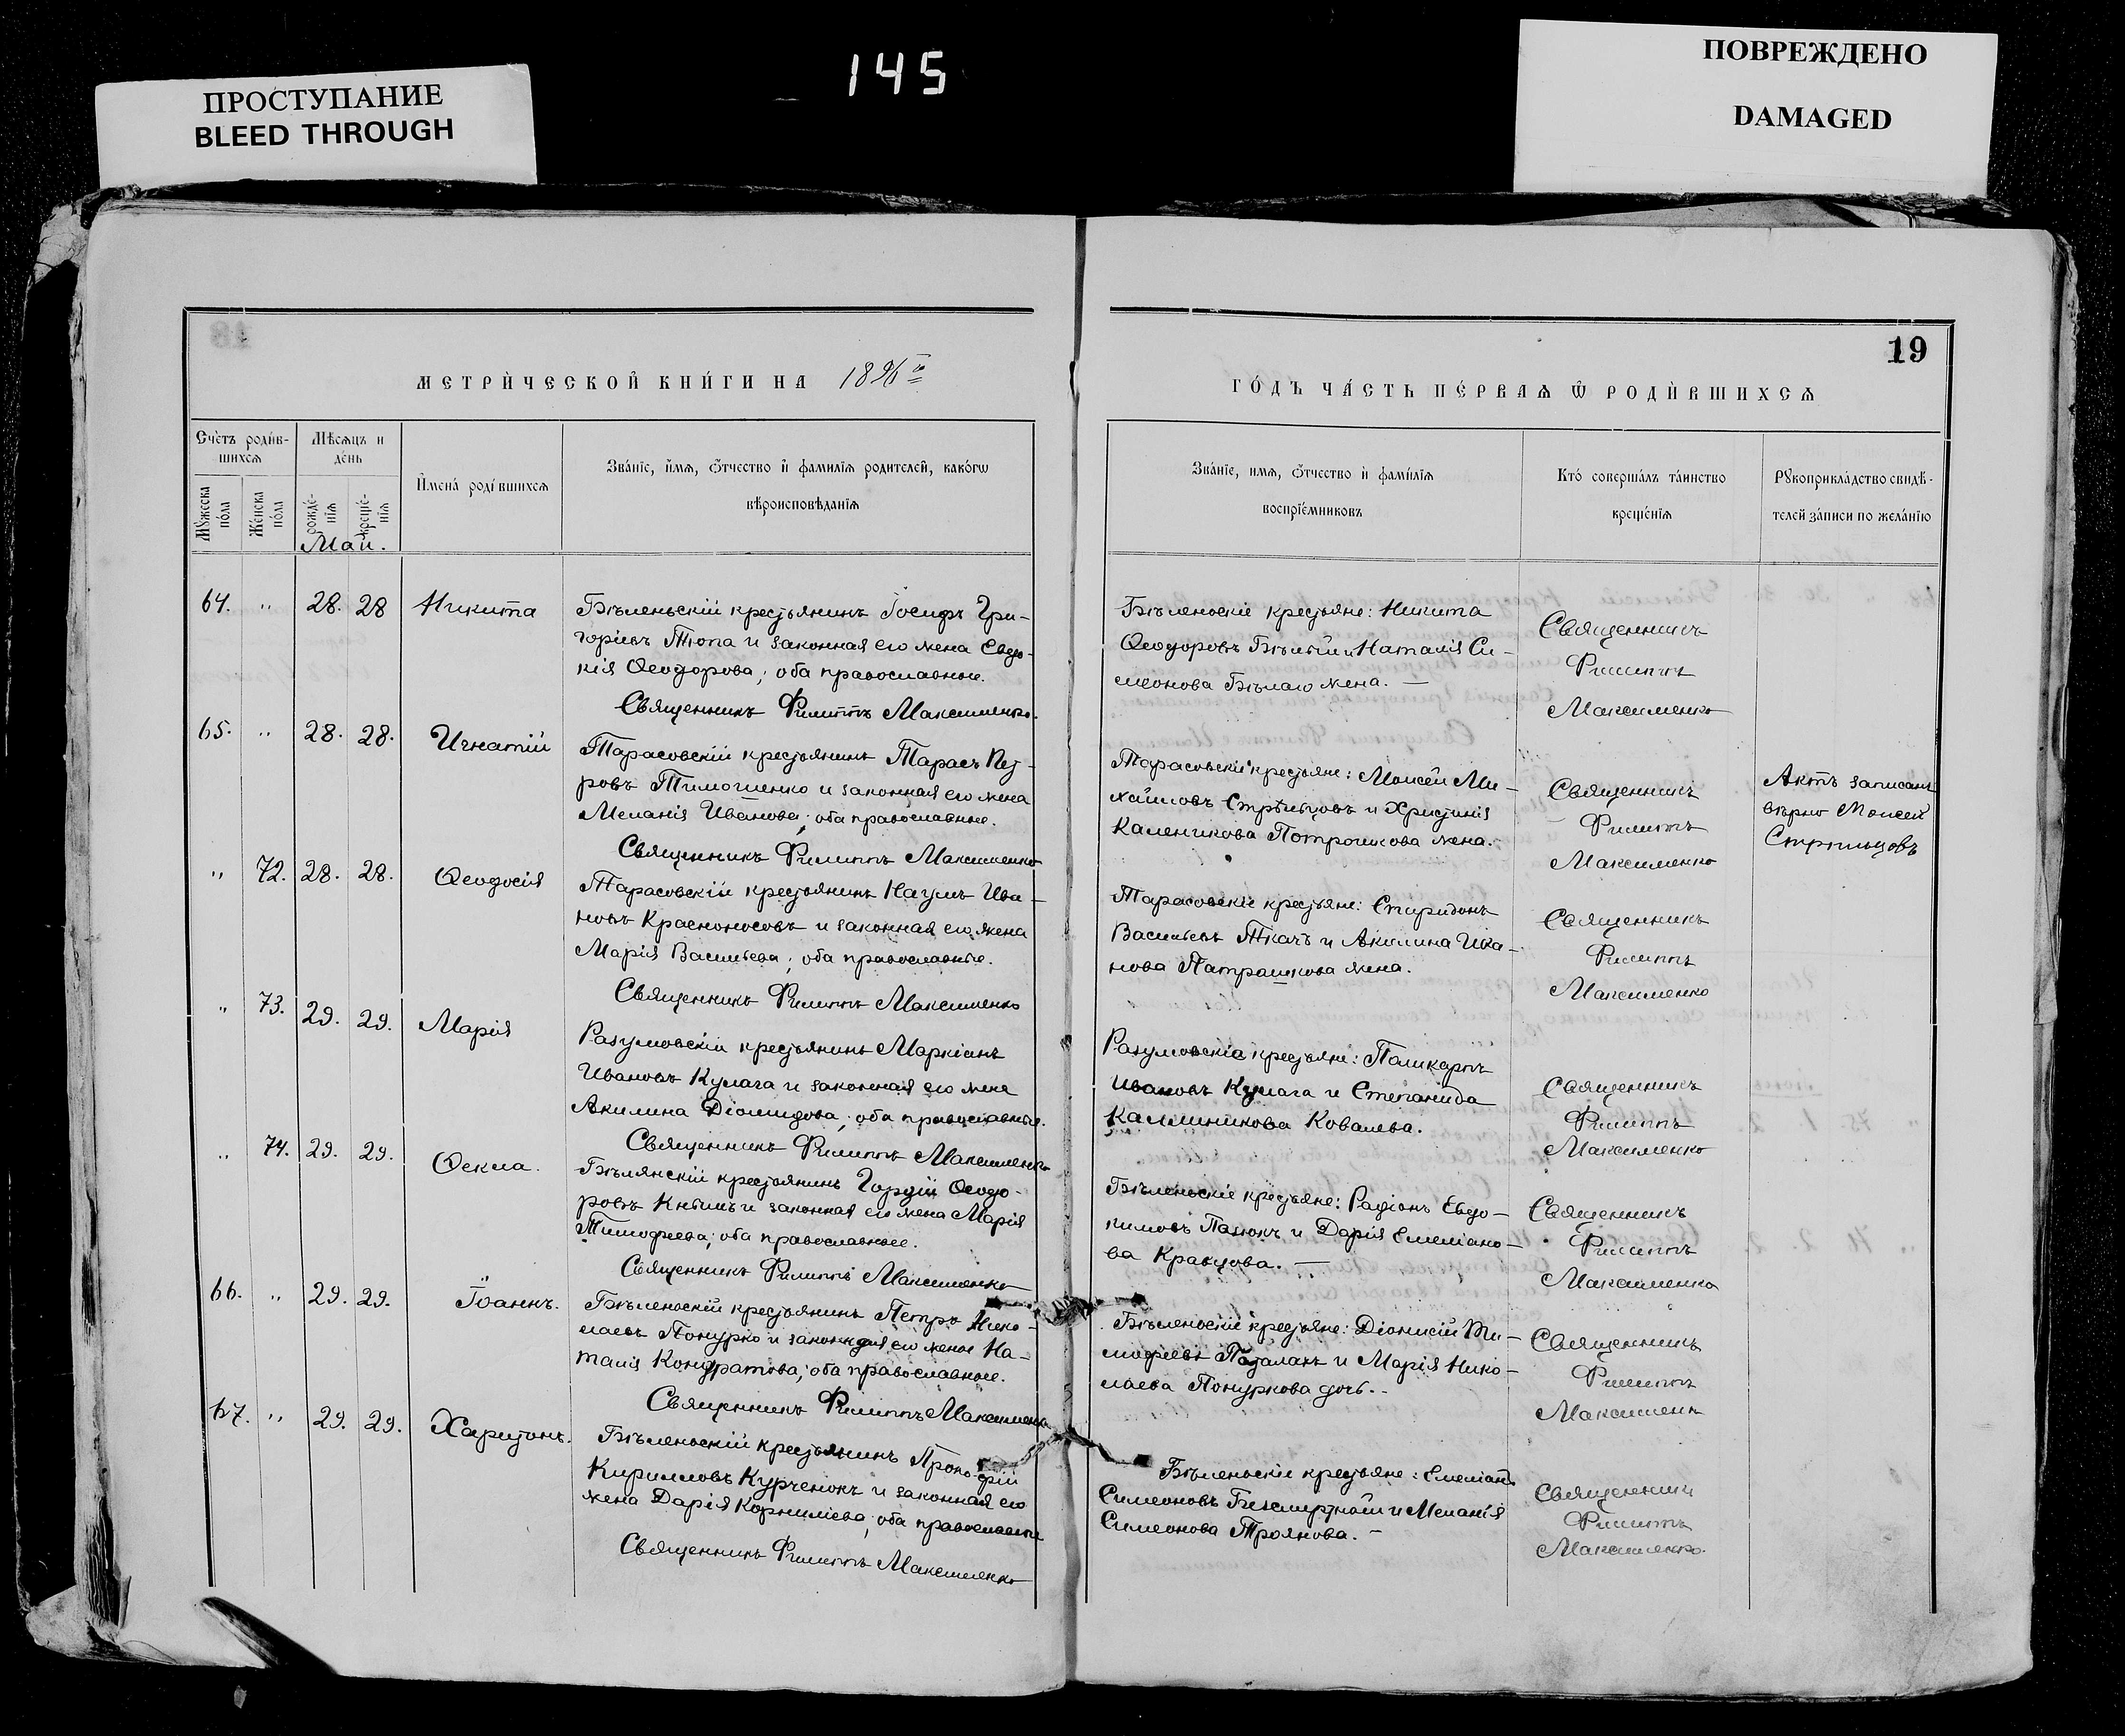 145
ПРОСТУПАНИЕ
BLEED THROUGH
ПОВРЕЖДЕНО
DAMAGED
19
МЕТРИЧЕСКОЙ КНИГИ НА 1896 го
ГОДЪ ЧАСТЬ ПЕРВАЯ Ѿ РОДИВШИХСЯ
Счетъ родив-
шихся
Мѣсяцъ и
день
Мужеска
пола
Женска
пола
рожде-
нія
креще-
нія
Имена родившихся
Званіе, имя, ѿчество и фамилія родителей, какогѡ
вѣроисповѣданія
Званіе, имя, ѿчество и фамилія
воспріемниковъ
Кто совершалъ таинство
крещенія
Рукоприкладство свидѣ-
телей записи по желанію
Май.
64. " 28. 28 Никита
Бѣленьскій крестьянинъ Іосифъ Гри-
горіевъ Тюпа и законная его жена Евдо-
кія Ѳеодорова; оба православные.
Священникъ Филиппъ Максименко.
Бѣленьскіе крестьяне: Никита
Ѳеодоровъ Бѣлый и Наталія Си-
меонова Бѣлаго жена. —
Священникъ
Филиппъ
Максименко
65. " 28. 28. Игнатій
Тарасовскій крестьянинъ Тарасъ Пет-
ровъ Тимошенко и законная его жена
Меланія Иванова; оба православные.
Священникъ Филиппъ Максименко
Тарасовскіе крестьяне: Моисей Ми-
хайловъ Стрѣльцовъ и Христинія
Каленикова Потрошкова жена.
Священникъ
Филиппъ
Максименко
Актъ записанъ
вѣрно Моисей
Стрѣльцовъ
" 72. 28. 28. Ѳеодосія
Тарасовскій крестьянинъ Наумъ Ива-
новъ Красноносовъ и законная его жена
Марія Васильева; оба православные.
Священникъ Филиппъ Максименко
Тарасовскіе крестьяне: Спиридонъ
Васильевъ Ткачъ и Акилина Ива-
нова Патрашкова жена.
Священникъ
Филиппъ
Максименко
" 73. 29. 29. Марія
Разумовскій крестьянинъ Маркіанъ
Ивановъ Кулага и законная его жена
Акилина Діомидова; оба православные.
Священникъ Филиппъ Максименко
Разумовскіе крестьяне: Поликарпъ
Ивановъ Кулага и Степанида
Каллиникова Ковалева.
Священникъ
Филиппъ
Максименко
" 74. 29. 29. Ѳекла.
Бѣлянскій крестьянинъ Гордій Ѳеодо-
ровъ Кнышъ и законная его жена Марія
Тимофеева; оба православные.
Священникъ Филиппъ Максименко
Бѣленьскіе крестьяне: Радіонъ Евдо-
кимовъ и Дарія Емеліано-
ва Кравцова. —
Священникъ
Филиппъ
Максименко
66. " 29. 29. Іоаннъ.
Бѣленьскій крестьянинъ Петръ Нико-
лаевъ Понурко и законная его жена На-
талія Кондратова; оба православные.
Священникъ Филиппъ Максименко
Бѣленьскіе крестьяне: Діонисій Ти-
мофеевъ и Марія Нико-
лаева Понуркова дочь. -
Священникъ
Филиппъ
Максименк
67. " 29. 29. Харитонъ.
Бѣленьскій крестьянинъ Прокофій
Кирилловъ Курченокъ и законная его
жена Дарія Корниліева; оба православные
Священникъ Филиппъ Максименко
Бѣленьскіе крестьяне: Емеліанъ
Симеоновъ Безсмертный и Меланія
Симеонова Троянова. -
Священник
Филиппъ
Максименко.